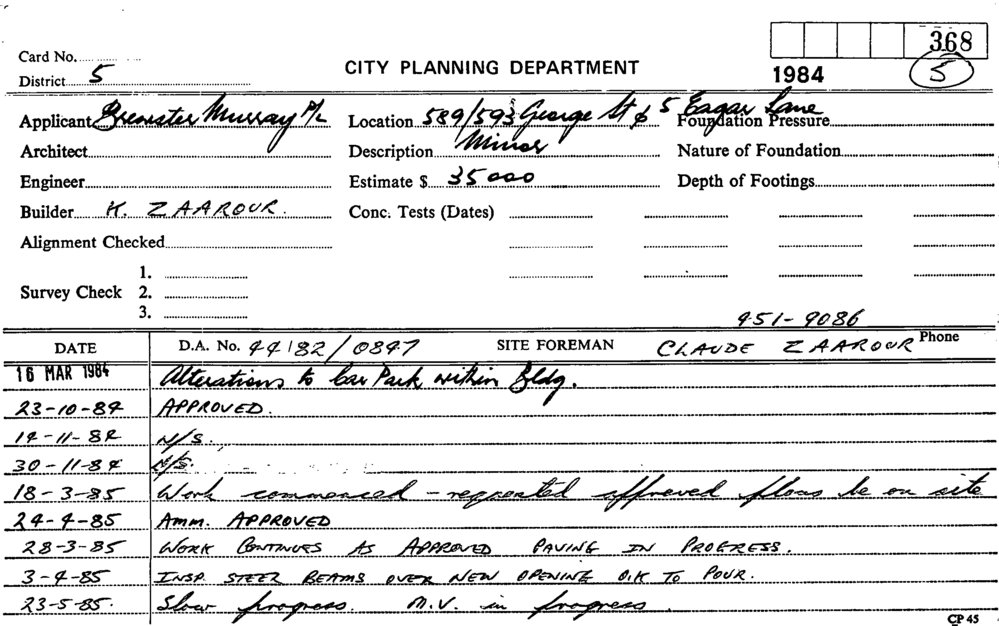 368
Card No.
CITY PLANNING DEPARTMENT
1984
5
District 5
Applicant Brewster Murray P/L Location 589/593 George St & 5 Eagar Lane Foundation Pressure
Architect Description Minor Nature of Foundation
Engineer Estimate $ 35000 Depth of Footings
Builder K. ZAAROUR. Conc. Tests (Dates)
Alignment Checked
1.
Survey Check 2.
3.
451-9086
DATE D.A. No. 44/82/0847 SITE FOREMAN CLAUDE ZAAROUR Phone
16 MAR 1984 Alterations to Car Park within Bldg.
23-10-84 APPROVED.
14-11-84 N/S.
30-11-84 N/S.
18-3-85 Work commenced - requested approved plans be on site
24-4-85 Amm. APPROVED
28-3-85 WORK CONTINUES AS APPROVED PAVING IN PROGRESS.
3-4-85 INSP. STEEL BEAMS OVER NEW OPENING O.K TO POUR.
23-5-85. Slow progress. M.V. in progress.
CP 45